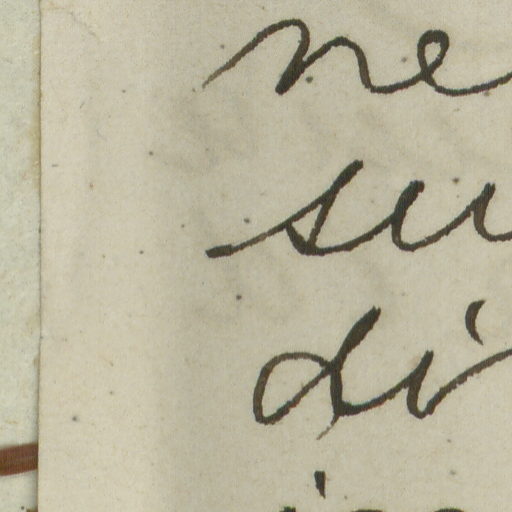 ne
su
di